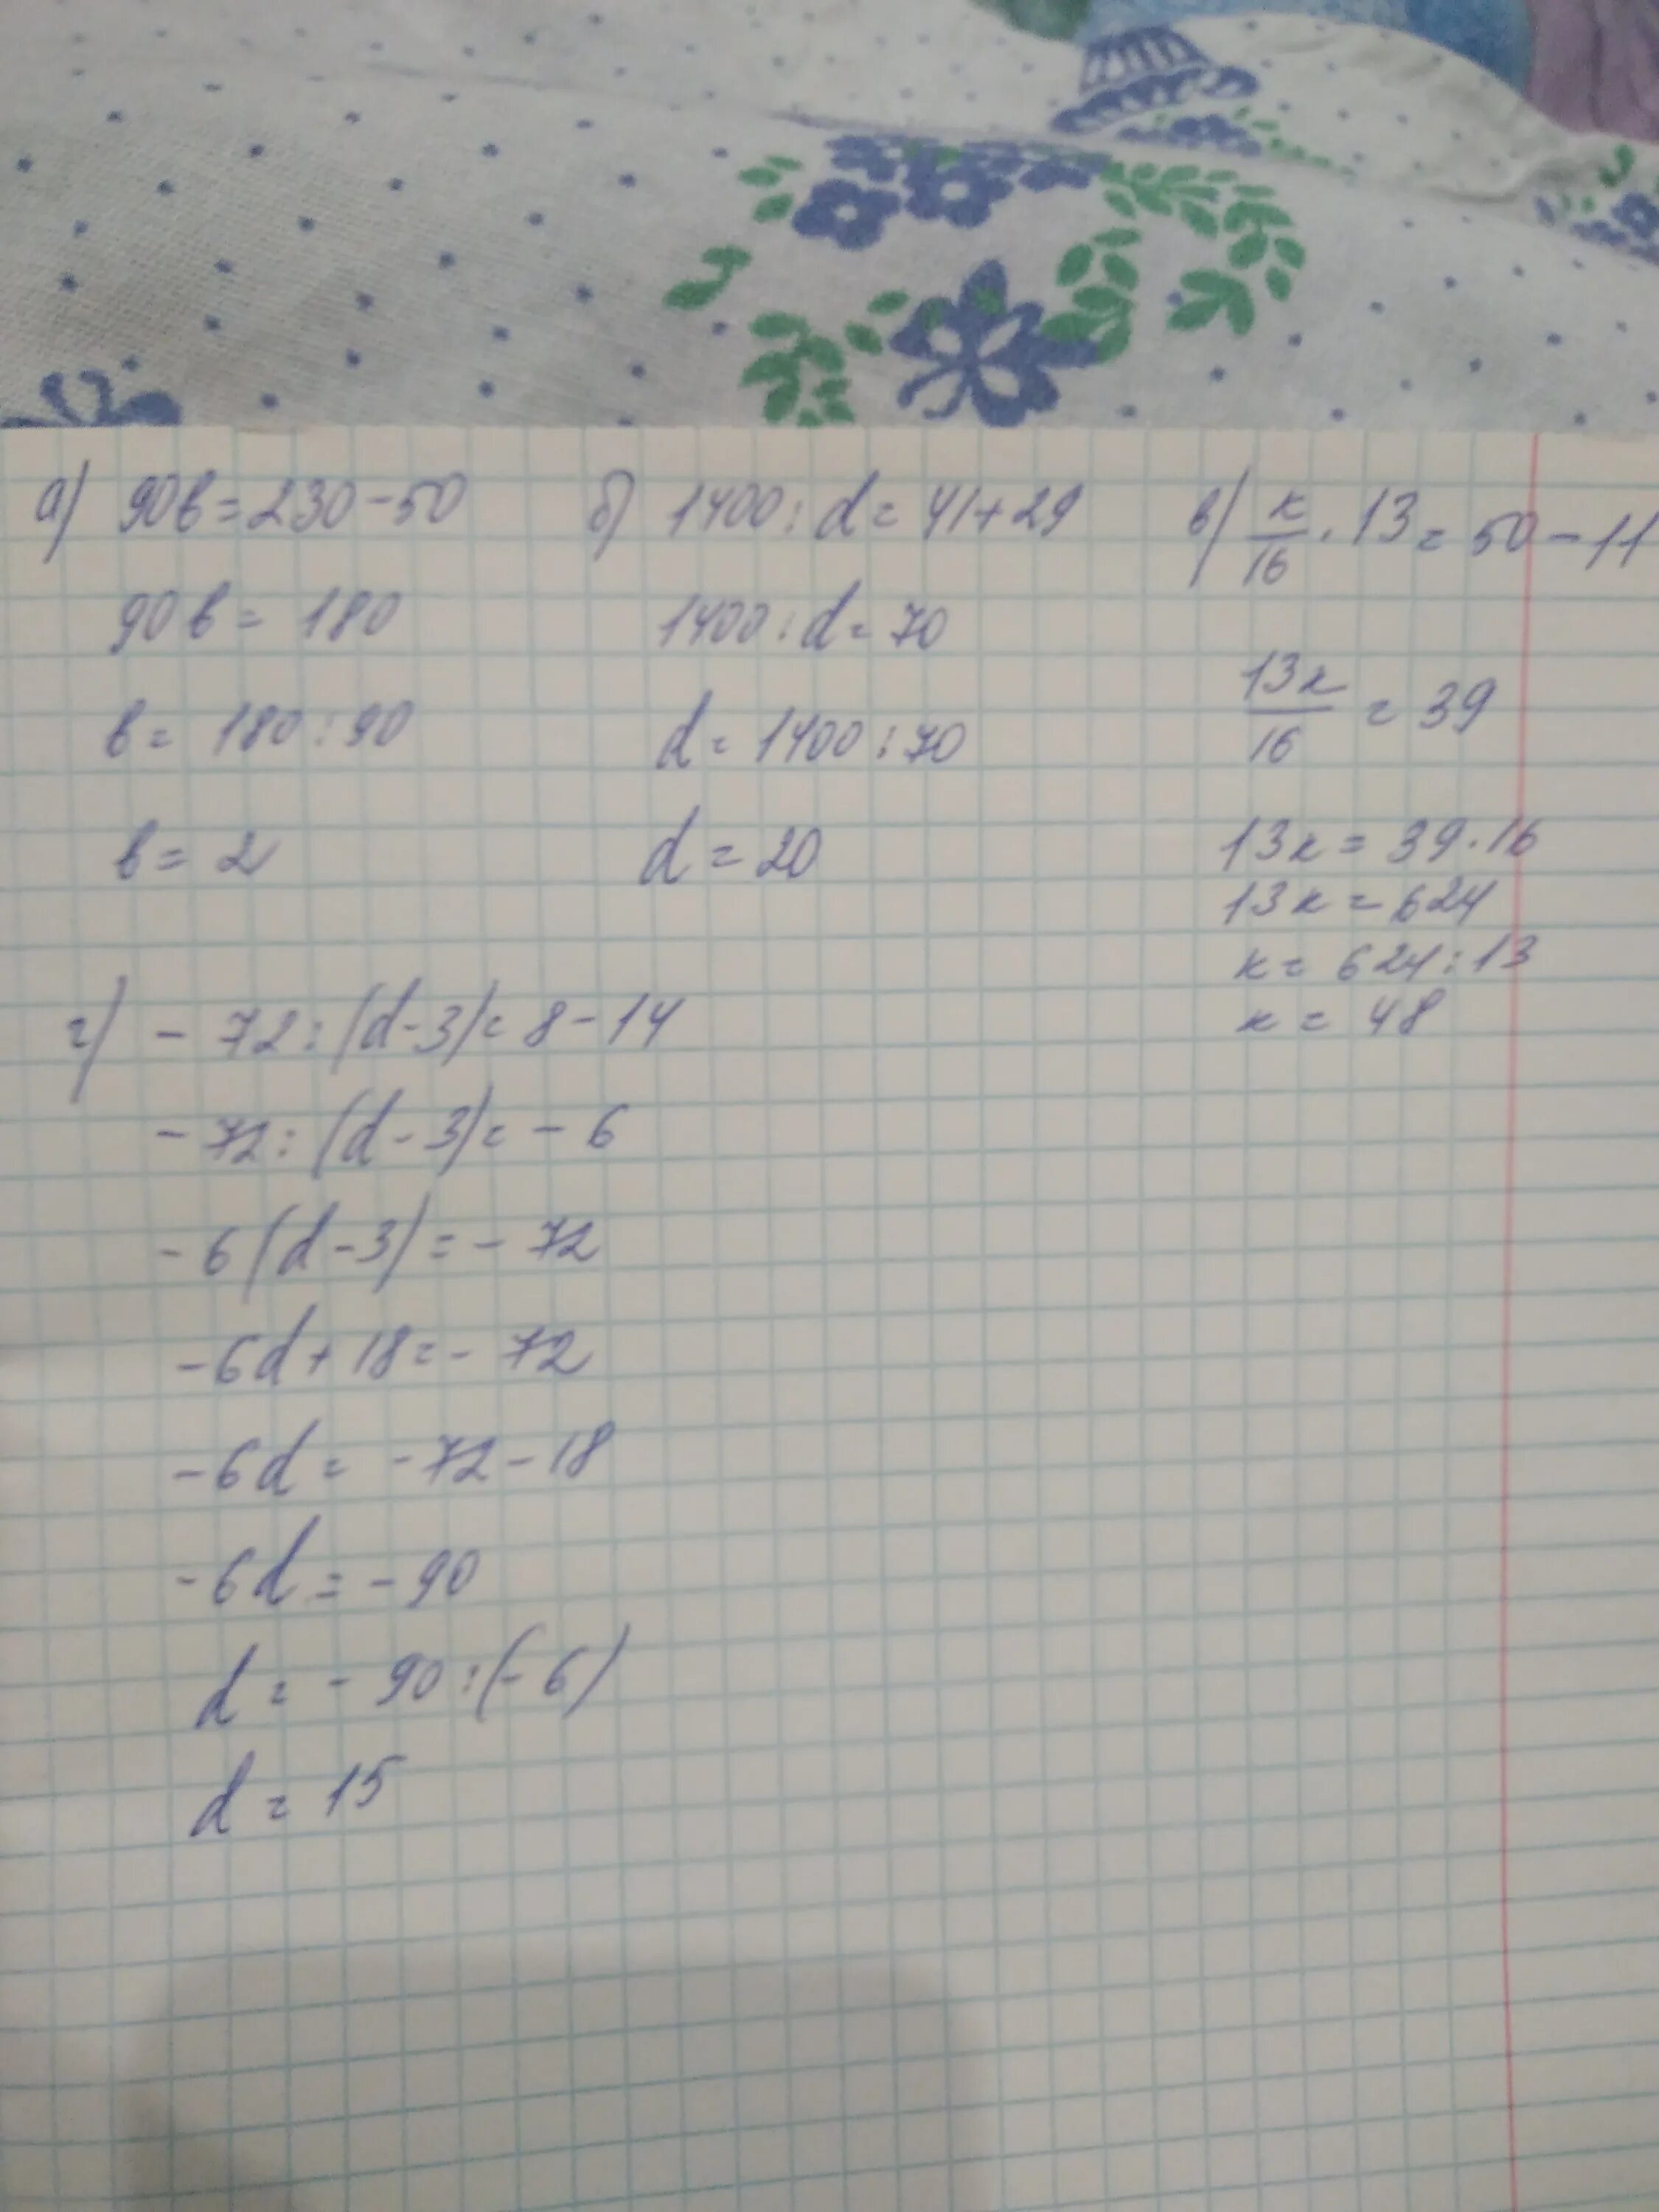 а) 90в = 230 - 50
90в = 180
в = 180 : 90
в = 2
б) 1400 : d = 41 + 29
1400 : d = 70
d = 1400 : 70
d = 20
в) к/16 · 13 = 50 - 11
13к/16 = 39
13к = 39 · 16
13к = 624
к = 624 : 13
к = 48
г) - 72 : (d - 3) = 8 - 14
- 72 : (d - 3) = - 6
- 6 (d - 3) = - 72
- 6d + 18 = - 72
- 6d = - 72 - 18
- 6d = - 90
d = - 90 : (- 6)
d = 15